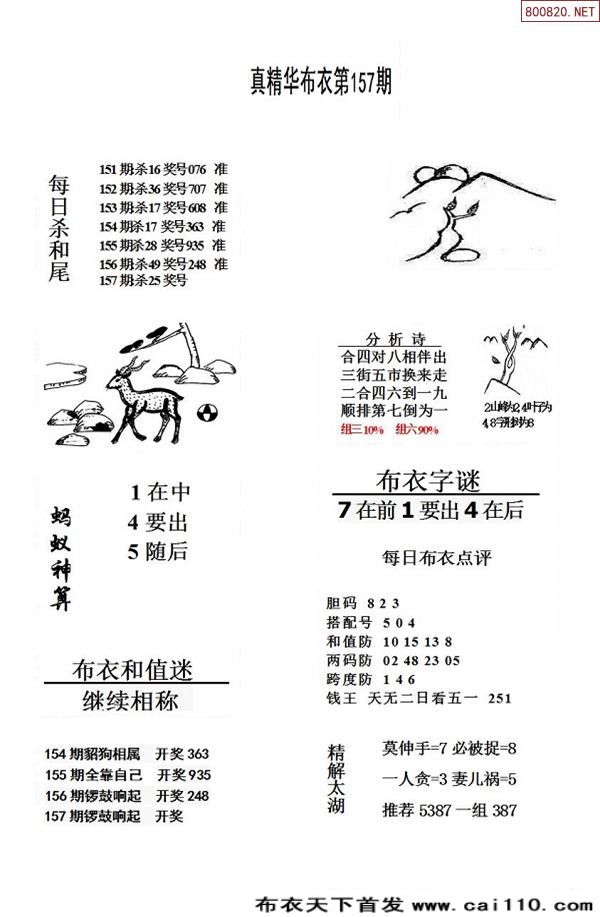 800820.NET
真精华布衣第157期
每日杀和尾
151期:杀16奖号076 准
152期:杀36奖号707 准
153期:杀17奖号608 准
154期:杀17奖号363 准
155期:杀28奖号935 准
156期:杀49奖号248 准
157期:杀25奖号
分析诗
合四对八相伴出
三街五市换来走
二合四六到一九
顺排第七倒为一
组三10% 组六90%
蚂蚁神算
1在中
4要出
5随后
布衣字谜
7在前1要出4在后
每日布衣点评
胆码 8 2 3
搭配号 5 0 4
和值防 10 15 13 8
两码防 02 48 23 05
跨度防 1 4 6
钱王 天无二日看五一 251
布衣和值迷
继续相称
154期貂狗相属 开奖363
155期全靠自己 开奖935
156期锣鼓响起 开奖248
157期锣鼓响起 开奖
精解太湖
莫伸手=7 必被捉=8
一人贪=3 妻儿祸=5
推荐5387一组387
布衣天下首发 www.cai110.com